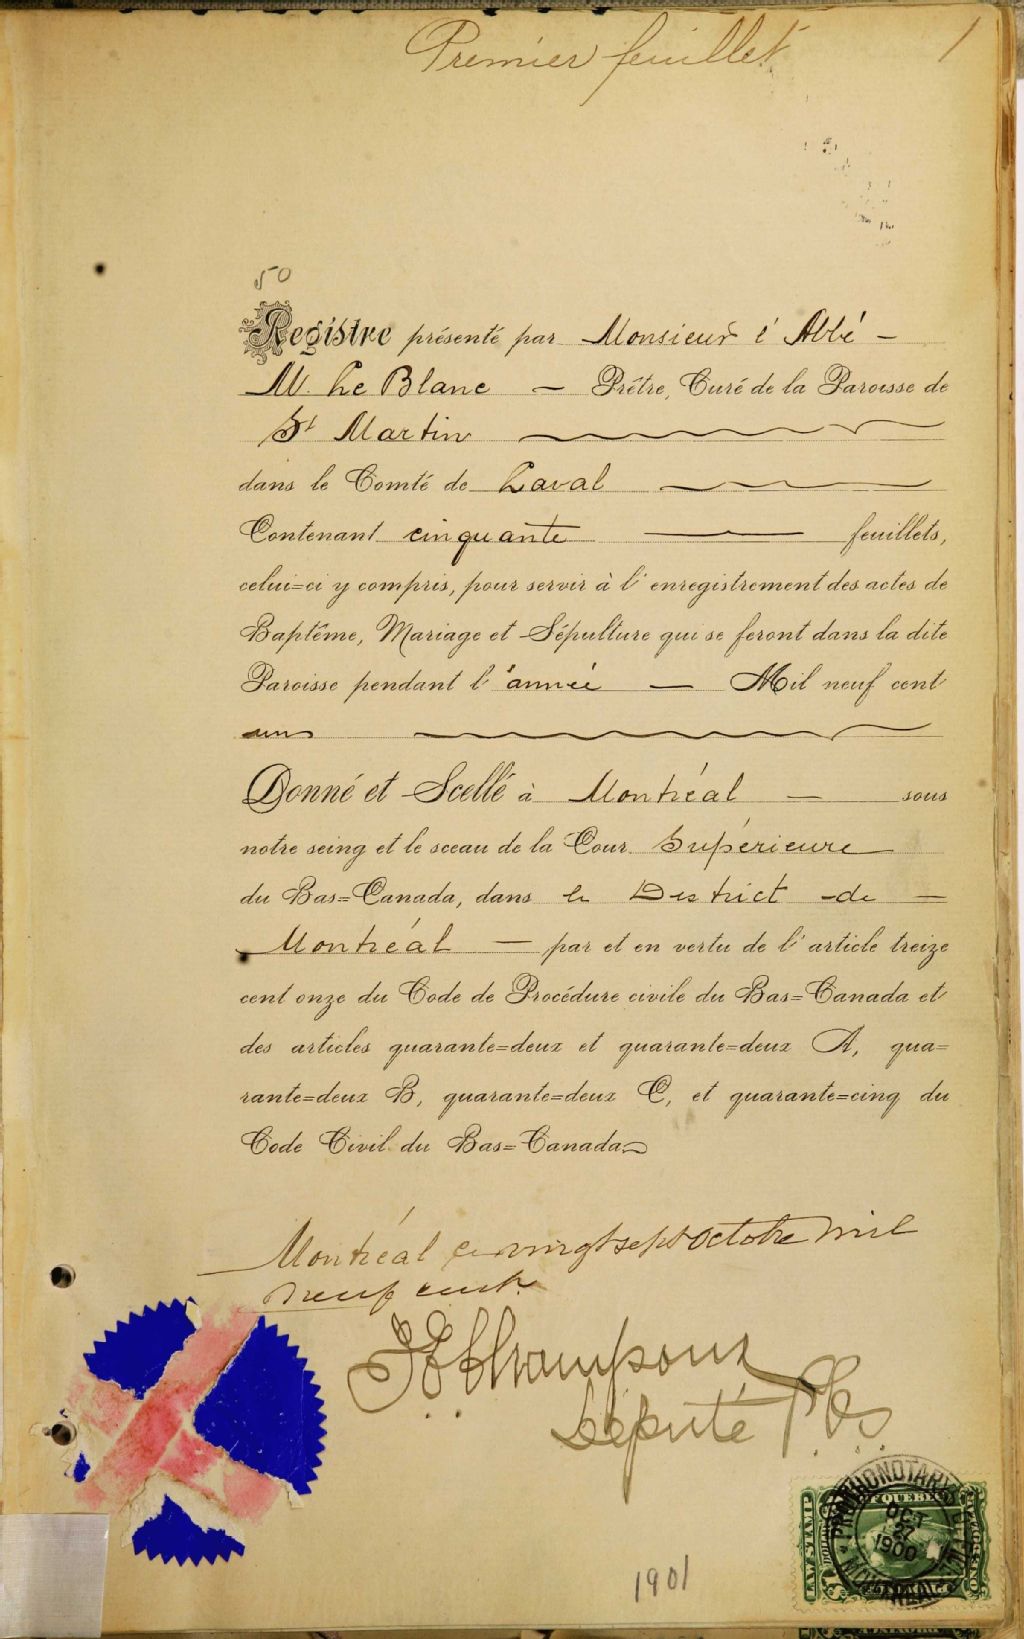 Premier feuillet 1
50
Registre présenté par Monsieur l'Abbé -
M. Le Blanc - Prêtre, Curé de la Paroisse de
St Martin
dans le Comté de Laval
Contenant cinquante feuillets,
celui=ci y compris, pour servir à l'enregistrement des actes de
Baptême, Mariage et Sépulture qui se feront dans la dite
Paroisse pendant l'année - Mil neuf cent
un
Donné et Scellé à Montréal - sous
notre seing et le sceau de la Cour Supérieure
du Bas=Canada, dans le District de -
Montréal - par et en vertu de l'article treize
cent onze du Code de Procédure civile du Bas=Canada et
des articles quarante=deux et quarante=deux A, qua=
rante=deux B, quarante=deux C, et quarante=cinq du
Code Civil du Bas=Canada
Montréal ce vingt sept Octobre mil
neuf cent.
Champoux
Député P.C.S.
PROTHONOTARY'S OFFICE
QUEBEC
LAW STAMP
OCT
27
1900
MONTREAL
1901